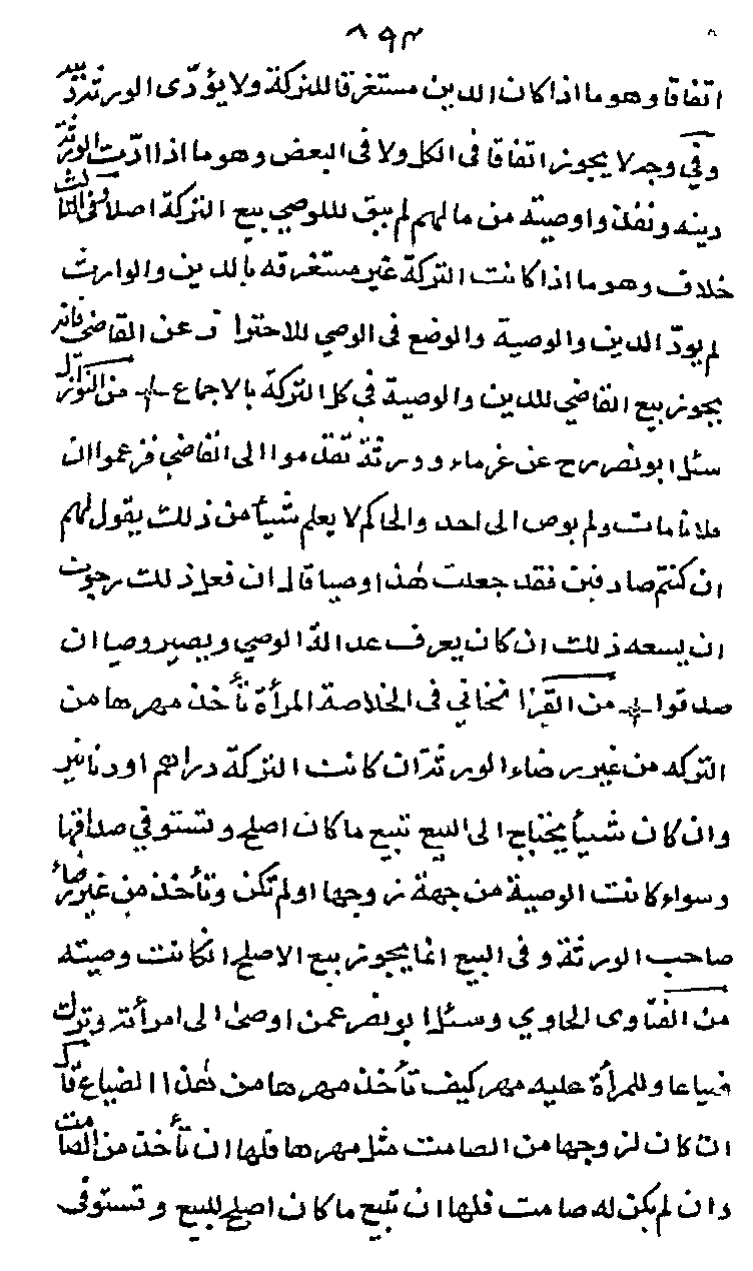 ٨٩٣
اتفاقا وهو ما اذا كان الدين مستغرقا للتركة ولا يؤدى الورثة
وفي وجه لا يجوز اتفاقا فى الكل ولا فى البعض وهو ما اذا ادّت الورثة
دينه ونفذوا وصيته من مالهم لم يبق للوصي بيع التركة اصلا وفى الثالث
خلاف وهو ما اذا كانت التركة غير مستغرقه بالدين والوارث
لم يودّ الدين والوصية والوضع فى الوصي للاحتراز عن القاضي فانه
يجوز بيع القاضي للدين والوصية في كل التركة بالاجماع من النوازل
سئل ابو نصر رح عن غرماء وورثة تقدموا الى القاضي فزعموا ان
فلانا مات ولم يوص الى احد والحاكم لا يعلم شيأ من ذلك يقول لهم
ان كنتم صادقين فقد جعلت هذا وصيا قال ان فعل ذلك رجوت
ان يسعه ذلك ان كان يعرف عدالة الوصي ويصير وصيا ان
صدقوا من القراخانى فى الخلاصة المرأة تأخذ مهرها من
التركه من غير رضاء الورثة ان كانت التركة دراهم او دنانير
وان كان شيأ يحتاج الى البيع تبيع ما كان اصلح وتستوفي صداقها
وسواء كانت الوصية من جهة زوجها او لم تكن وتأخذ من غير رضاء
صاحب الورثة وفى البيع انما يجوز بيع الاصلح ان كانت وصيته
من الفتاوى الحاوي وسئل ابو نصر عمن اوصى الى امرأته وترك
ضياعا وللمرأة عليه مهر كيف تأخذ مهرها من هذا الضياع قال
ان كان لزوجها من الصامت مثل مهرها فلها ان تأخذ من الصامت
وان لم يكن له صامت فلها ان تبيع ما كان اصلح للبيع وتستوفى